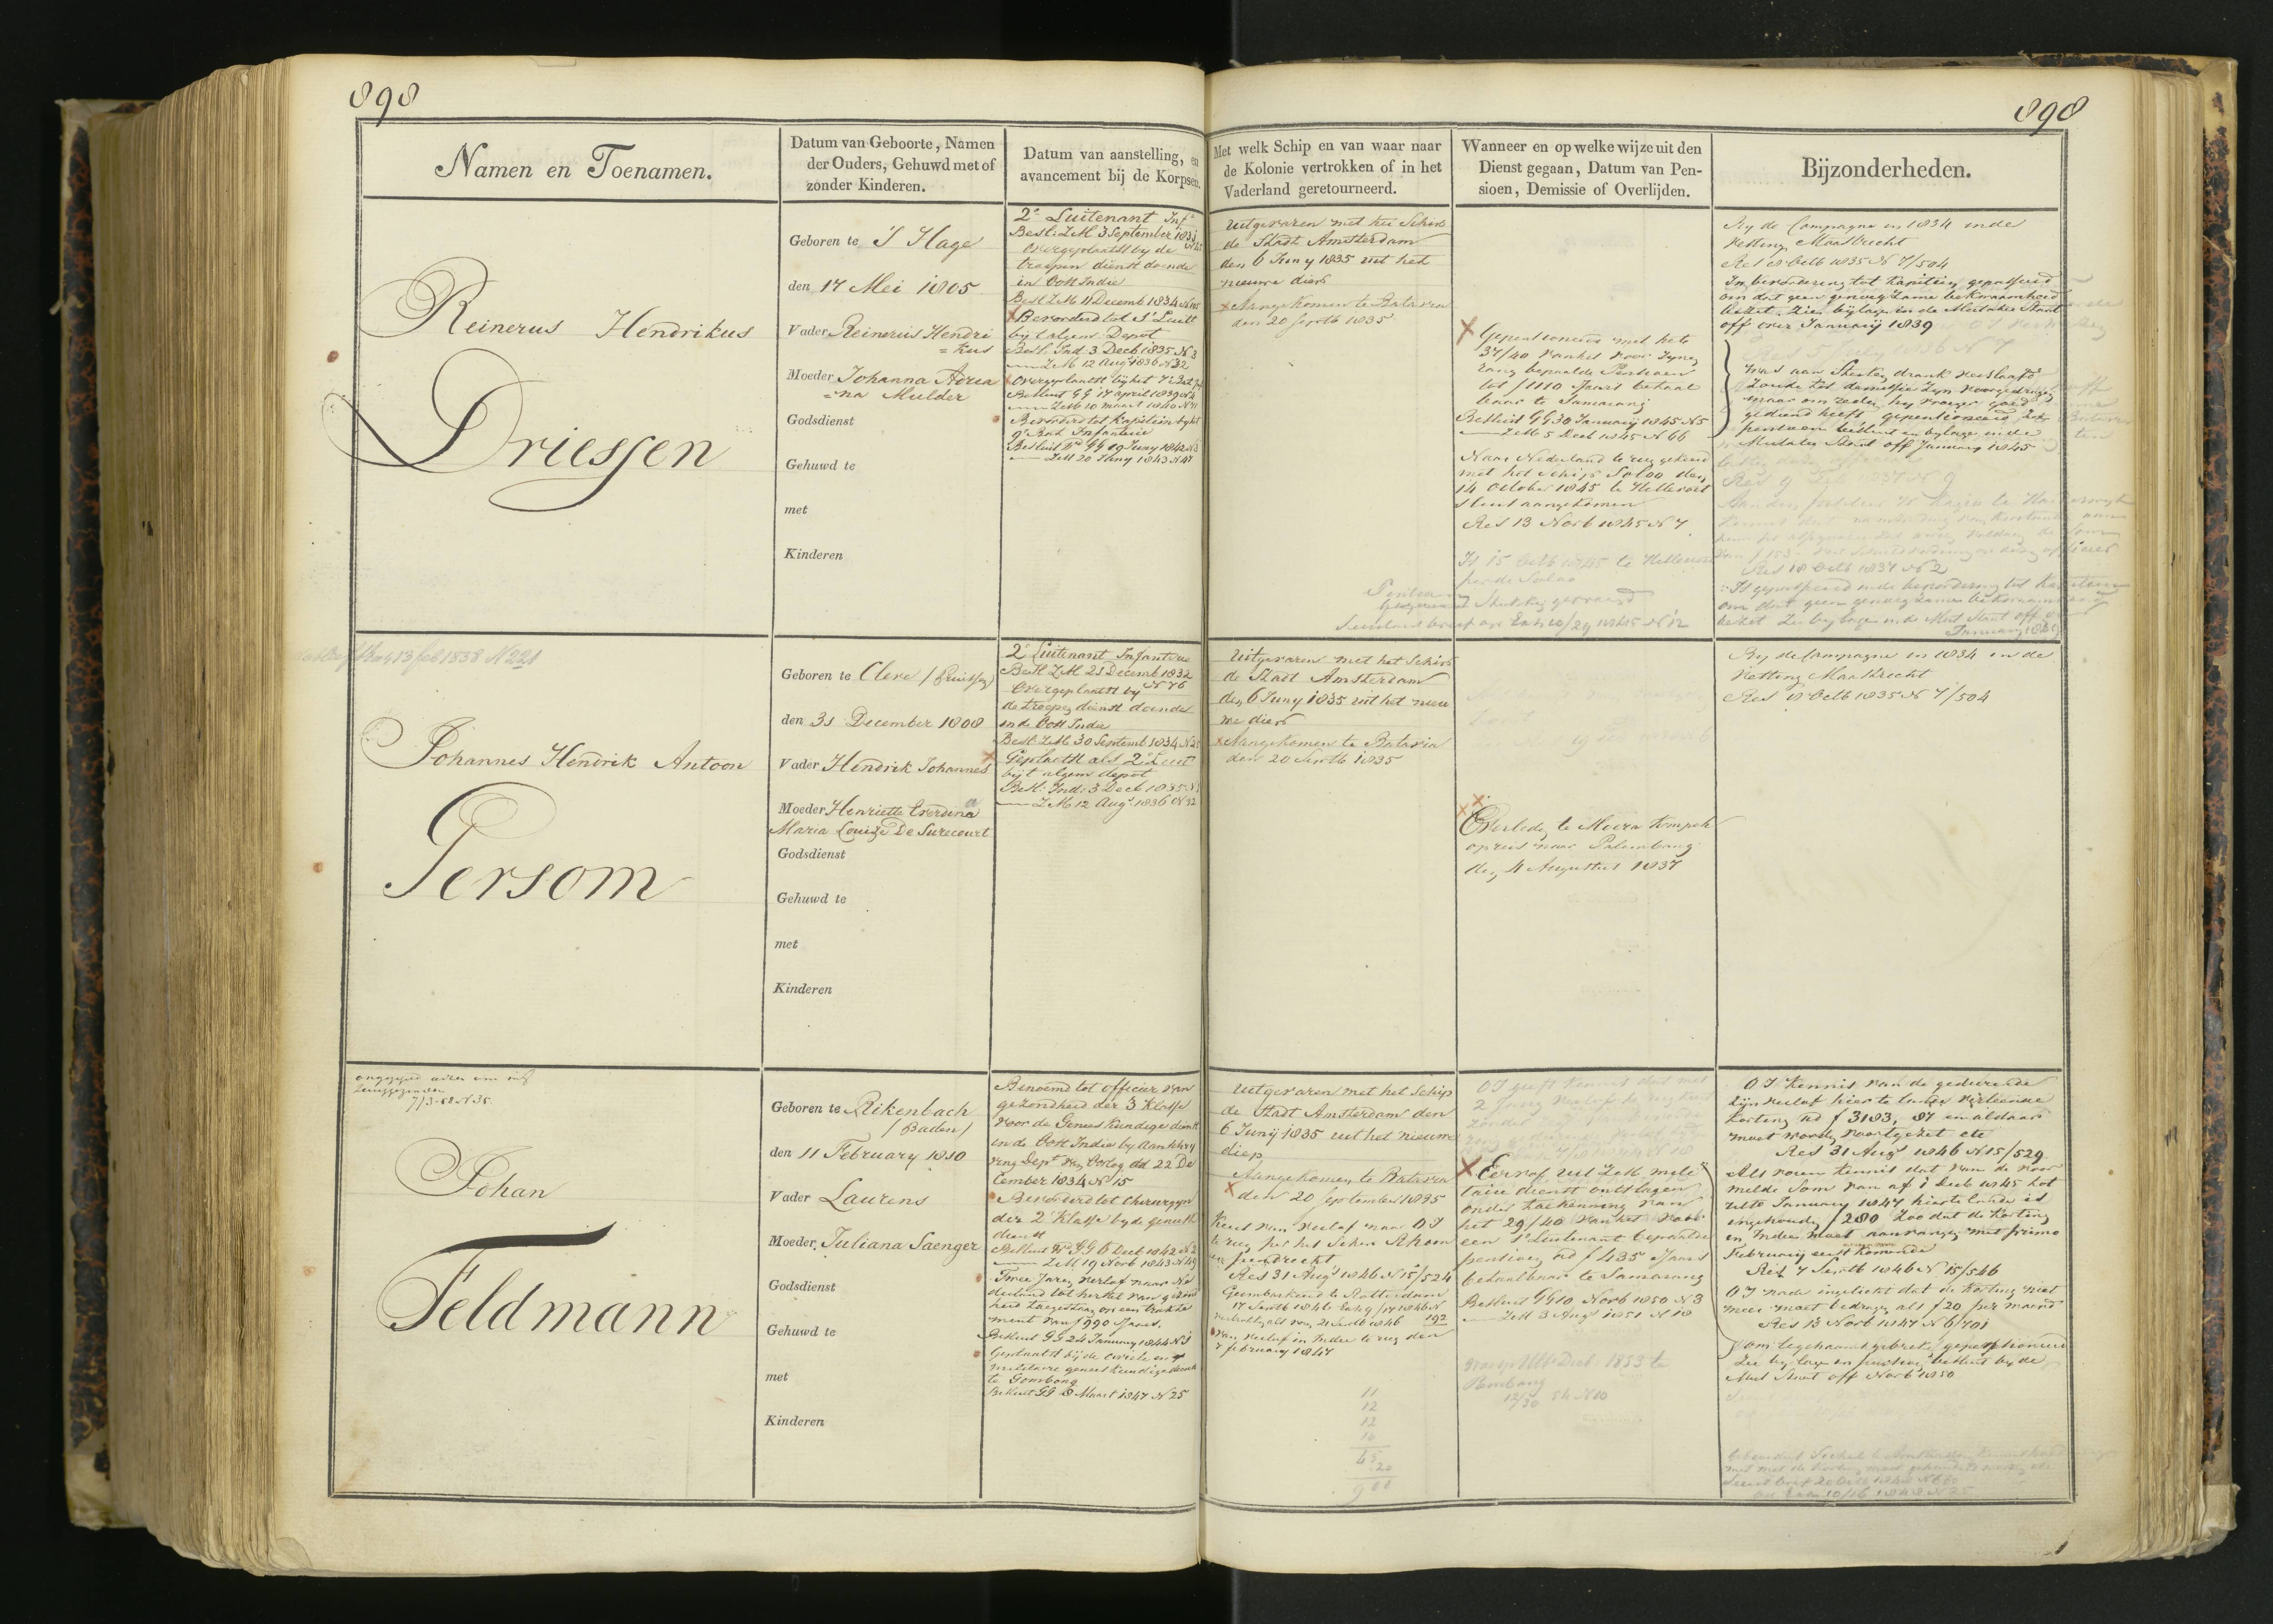 898
898
Namen en Toenamen.
Datum van Geboorte, Namen
der Ouders, Gehuwd met of
zonder Kinderen.
Datum van aanstelling, en
avancement bij de Korpsen.
Met welk Schip en van waar naar
de Kolonie vertrokken of in het
Vaderland geretourneerd.
Wanneer en op welke wijze uit den
Dienst gegaan, Datum van Pen-
sioen, Demissie of Overlijden.
Bijzonderheden.
Reinerus Hendrikus
Driessen
Geboren te 'S Hage
den 17 Mei 1805
Vader Reinerius Hendri
= kus
Moeder Johanna Adria
=na Mulder
Godsdienst
Gehuwd te
met
Kinderen
2e Luitenant Infe
Besl: ZM 3 September 1831
Overgeplaatst by de
troepen dienst doende
in Oost Indie
Besl ZM 11 Decemb 1834
Bevorderd tot 1e Luitt
bij t algem: Depot
Besl. Ind. 3 Decb 1835 N 3
ZM 12 Augt 1836 N 32
Overgeplaatst bij het 7e Bat
Besluit GG 17 april 1839 N 4
ZM 10 maart 1840 N 71
Bevorderd tot Kapitein by het
9e Bat Infanterie
Besluit GG 19 Juny 1842
ZM 20 Juny 1843 N 47
Uitgevaren met het Schip
de Stadt Amsterdam
den 6 Juny 1835 uit het
nieuwe diep
Aangekomen te Batavia
den 20 Septb 1835
Gepensioneerd met het
37/40 van het voor zynen
rang bepaalde Pensioen
tot f 1110 Jaars betaal
baar te Samarang
Besluit GG 30 January 1845 N 5
ZM 5 Decb 1845 N 66
Naar Nederland terug gekeerd
met het schip Soloo den
14 October 1845 te Hellevoet
sluis aangekomen
Res 13 Novb 1845 N 7
By de Campagne in 1834 in de
vesting Maastrecht
Res 18 Octb 1835 N 7/504
In bevordering tot Kapitein gepasseerd
om dat geen genoegzame bekwaamheid
bezit. Zie bijlage in de Mutatie Staat
off over January 1839
was aan Sterken drank verslaafd
zoude tot demissie zyn voorgedragen
maar om reden hy vroeger goed
gediend heeft gepensioneerd zie
pensioen besluit en bylage in de
Mutatie Staat off January 1845
Res 18 Octb 1837 N 2
Johannes Hendrik Antoon
Persom
Geboren te Cleve / Pruissen
den 31 December 1808
Vader Hendrik Johannes
Moeder Henriette Everdina
Maria Louize De Surecourt
Godsdienst
Gehuwd te
met
Kinderen
2e Luitenant Infanterie
Besl ZM 21 Decemb 1832
N 76
Overgeplaatst by
de troepen dienst doende
in de Oost Indie
Besl: ZM 30 Septemb 1834 N 25
Geplaatst als 2e Luit
bij t algem depot
Besl: Ind: 3 Decb 1835 N 3
ZM 12 Augt 1836 N 32
Uitgevaren met het Schip
de Stadt Amsterdam
den 6 Juny 1835 uit het nieu
we diep
Aangekomen te Batavia
den 20 Septb 1835
Overleden te Moera Kompeh
op reis naar Palembang
den 4 Augustus 1837
By de Campagne in 1834 in de
vesting Maastrecht
Res 18 Octb 1835 N 7/504
Johan
Feldmann
Geboren te Rikenbach
/ Baden /
den 11 February 1810
Vader Laurens
Moeder Juliana Saenger
Godsdienst
Gehuwd te
met
Kinderen
Benoemd tot officier van
gezondheid der 3 Klasse
voor de Geneeskundige dienst
in de Oost Indie by Aanschry
ving Dept van Oorlog dd 22 De
cember 1834 N 15
Bevorderd tot Chirurgyn
der 2e Klasse by de geneesk
dienst
Besluit GG 6 Decb 1842 N 2
ZM 19 Novb 1843 N 49
Twee Jaren verlof naar Ne
derland tot herstel van gezond
heid toegestaan op een trakte
ment van f 990 Jaars.
Besluit GG 24 January 1844 N 1
Geplaatst bij de civiele en
militaire geneeskundige dienst
te Gombong
Besluit GG 8 Maart 1847 N 25
Uitgevaren met het Schip
de Stadt Amsterdam den
6 Junij 1835 uit het nieuwe
diep
Aangekomen te Batavia
den 20 September 1835
Keert van verlof naar O I
terug per het Schip Rhoon
en pendrecht
Res 31 Augt 1846 N 15/524
Geembarkeerd te Rotterdam
van verlof in Indie terug den
7 february 1847
11
12
12
10
45
20
900
Eervol uit ZM mili
taire dienst ontslagen
onder toekenning van
het 29/40 van het voor
een 1e Luitenant bepaalde
pensioen ad f 435 Jaars
betaalbaar te Samarang
Besluit GG 10 Novb 1850 N 3
ZM 3 Augt 1851 N 18
O I kennis van de gedurende
zyn verlof hier te lande verleende
korting ad f 3183,87 en aldaar
moet worden voortgezet etc
Res 31 Augt 1846 N 15/529
Als voren kennis dat van de voor
melde Som van af 1 Decb 1845 tot
ulto January 1847 hier te lande is
ingehouden f 280 zoo dat de korting
in Indie moet aanvangen met primo
February eerstkomende
Res 7 Septb 1846 N 15/546
O I nader ingelicht dat de korting niet
meer moet bedragen als f 20 per maand
Res 13 Novb 1847 N 6/701
om ligchaamsgebreken gepensioneerd
Zie bylage en pensioen besluit by de
Mut Staat off Novb 1850